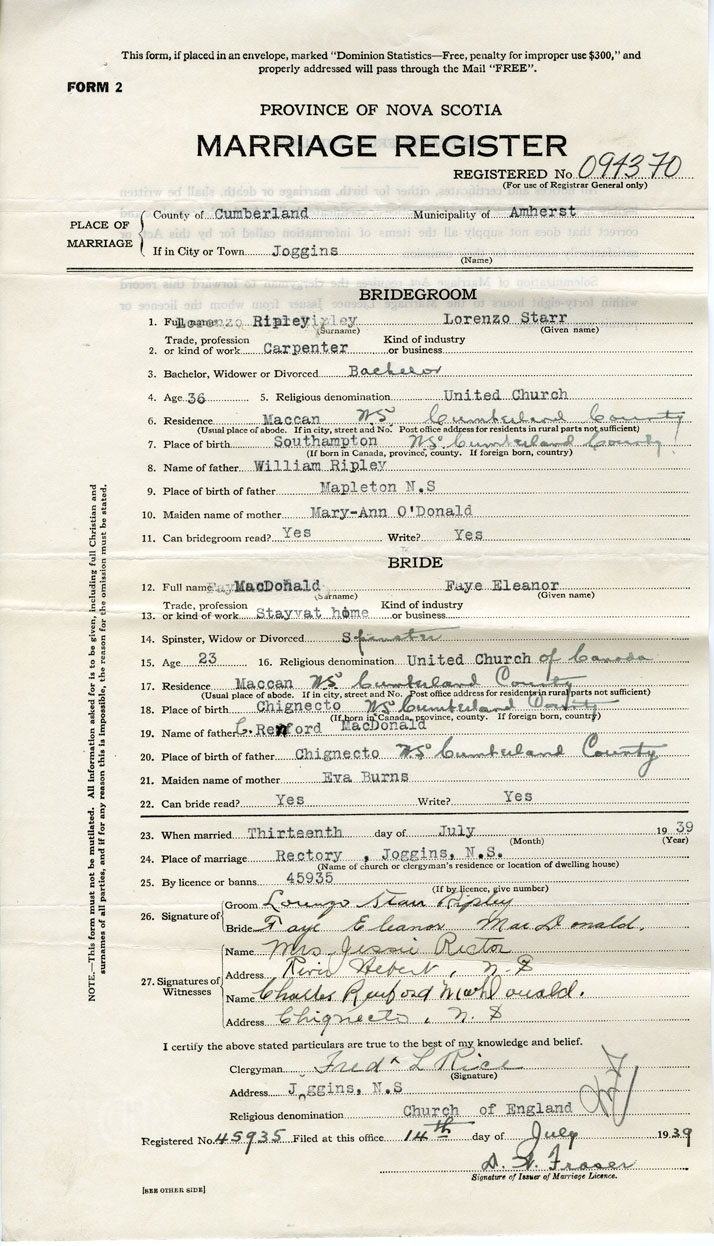 This form, if placed in an envelope, marked "Dominion Statistics—Free, penalty for improper use $300," and
properly addressed will pass through the Mail "FREE".
FORM 2
PROVINCE OF NOVA SCOTIA
MARRIAGE REGISTER
REGISTERED No. 094370
(For use of Registrar General only)
PLACE OF MARRIAGE
County of Cumberland Municipality of Amherst
If in City or Town Joggins
(Name)
BRIDEGROOM
1. Full name Ripley Lorenzo Starr
(Surname) (Given name)
Trade, profession Kind of industry
2. or kind of work Carpenter or business
3. Bachelor, Widower or Divorced Bachelor
4. Age 36 5. Religious denomination United Church
6. Residence Maccan NS Cumberland County
(Usual place of abode. If in city, street and No. Post office address for residents in rural parts not sufficient)
7. Place of birth Southampton NS Cumberland County
(If born in Canada, province, county. If foreign born, country)
8. Name of father William Ripley
9. Place of birth of father Mapleton N.S
10. Maiden name of mother Mary-Ann O'Donald
11. Can bridegroom read? Yes Write? Yes
BRIDE
12. Full name MacDonald Faye Eleanor
(Surname) (Given name)
Trade, profession Kind of industry
13. or kind of work Stayvat home or business
14. Spinster, Widow or Divorced Spinster
15. Age 23 16. Religious denomination United Church of Canada
17. Residence Maccan NS Cumberland County
(Usual place of abode. If in city, street and No. Post office address for residents in rural parts not sufficient)
18. Place of birth Chignecto NS Cumberland County
(If born in Canada, province, county. If foreign born, country)
19. Name of father C. Renford MacDonald
20. Place of birth of father Chignecto NS Cumberland County
21. Maiden name of mother Eva Burns
22. Can bride read? Yes Write? Yes
23. When married Thirteenth day of July 1939
(Month) (Year)
24. Place of marriage Rectory , Joggins, N.S.
(Name of church or clergyman's residence or location of dwelling house)
25. By licence or banns 45935
(If by licence, give number)
26. Signature of
Groom Lorenzo Starr Ripley
Bride Faye Eleanor MacDonald.
27. Signatures of Witnesses
Name Mrs Jessie Rector
Address River Hebert, N.S
Name Charles Renford MacDonald.
Address Chignecto, N.S
I certify the above stated particulars are true to the best of my knowledge and belief.
Clergyman Fred L Rice
(Signature)
Address Joggins, N.S
Religious denomination Church of England
Registered No. 45935 Filed at this office 14th day of July 1939
D. W. Fraser
Signature of Issuer of Marriage Licence.
[SEE OTHER SIDE]
NOTE.—This form must not be mutilated. All information asked for is to be given, including full Christian and
surnames of all parties, and if for any reason this is impossible, the reason for the omission must be stated.